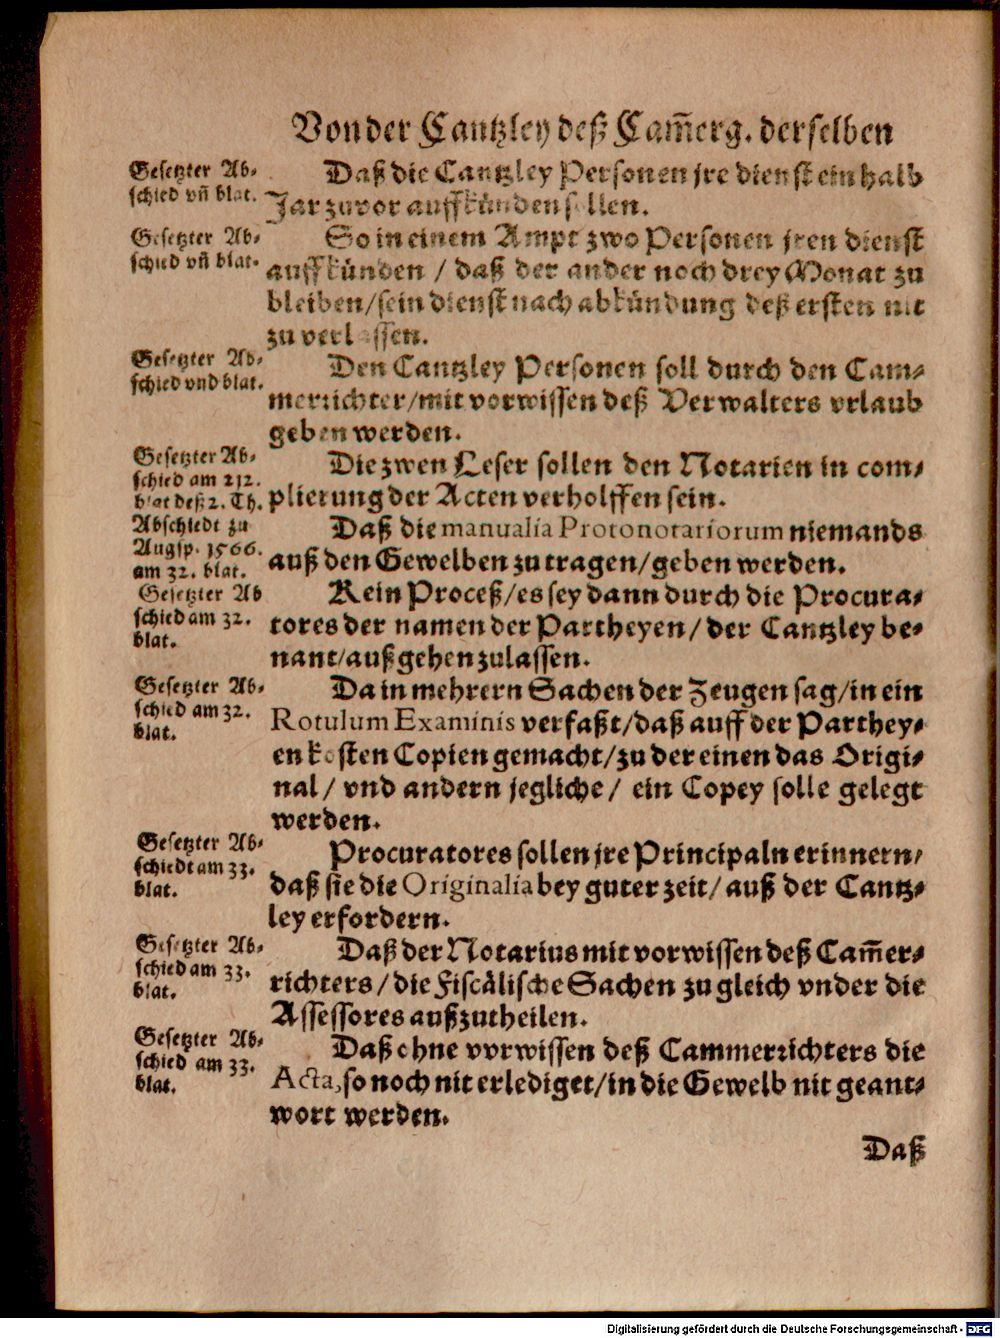 Von der Cantzley deß Cam̃erg. derselben
Gesetzter Ab-
schied vñ blat.
Daß die Cantzley Personen jre dienst ein halb
Jar zuvor auffkünden sollen.
Gesetzter Ab-
schied vñ blat.
So in einem Ampt zwo Personen jren dienst
auffkünden / daß der ander noch drey Monat zu
bleiben/sein dienst nach abkündung deß ersten nit
zu verlassen.
Gesetzter Ab-
schied vnd blat.
Den Cantzley Personen soll durch den Cam-
merrichter/mit vorwissen deß Verwalters vrlaub
geben werden.
Gesetzter Ab-
schied am 212.
blat deß 2. Th.
Die zwen Leser sollen den Notarien in com-
plierung der Acten verholffen sein.
Abschiedt zu
Augsp. 1566.
am 32. blat.
Daß die manualia Protonotariorum niemands
auß den Gewelben zu tragen/geben werden.
Gesetzter Ab
schied am 32.
blat.
Kein Proceß/es sey dann durch die Procura-
tores der namen der Partheyen/der Cantzley be-
nant/auß gehen zulassen.
Gesetzter Ab-
schied am 32.
blat.
Da in mehrern Sachen der Zeugen sag/in ein
Rotulum Examinis verfaßt/daß auff der Parthey-
en kosten Copien gemacht/zu der einen das Origi-
nal / vnd andern jegliche / ein Copey solle gelegt
werden.
Gesetzter Ab-
schiedt am 33.
blat.
Procuratores sollen jre Principaln erinnern/
daß sie die Originalia bey guter zeit/auß der Cantz-
ley erfordern.
Gesetzter Ab-
schied am 33.
blat.
Daß der Notarius mit vorwissen deß Cam̃er-
richters/die Fiscälische Sachen zugleich vnder die
Assessores außzutheilen.
Gesetzter Ab-
schied am 33.
blat.
Daß ohne vorwissen deß Cammerrichters die
Acta, so noch nit erlediget/in die Gewelb nit geant-
wort werden.
Daß
Digitalisierung gefördert durch die Deutsche Forschungsgemeinschaft - DFG